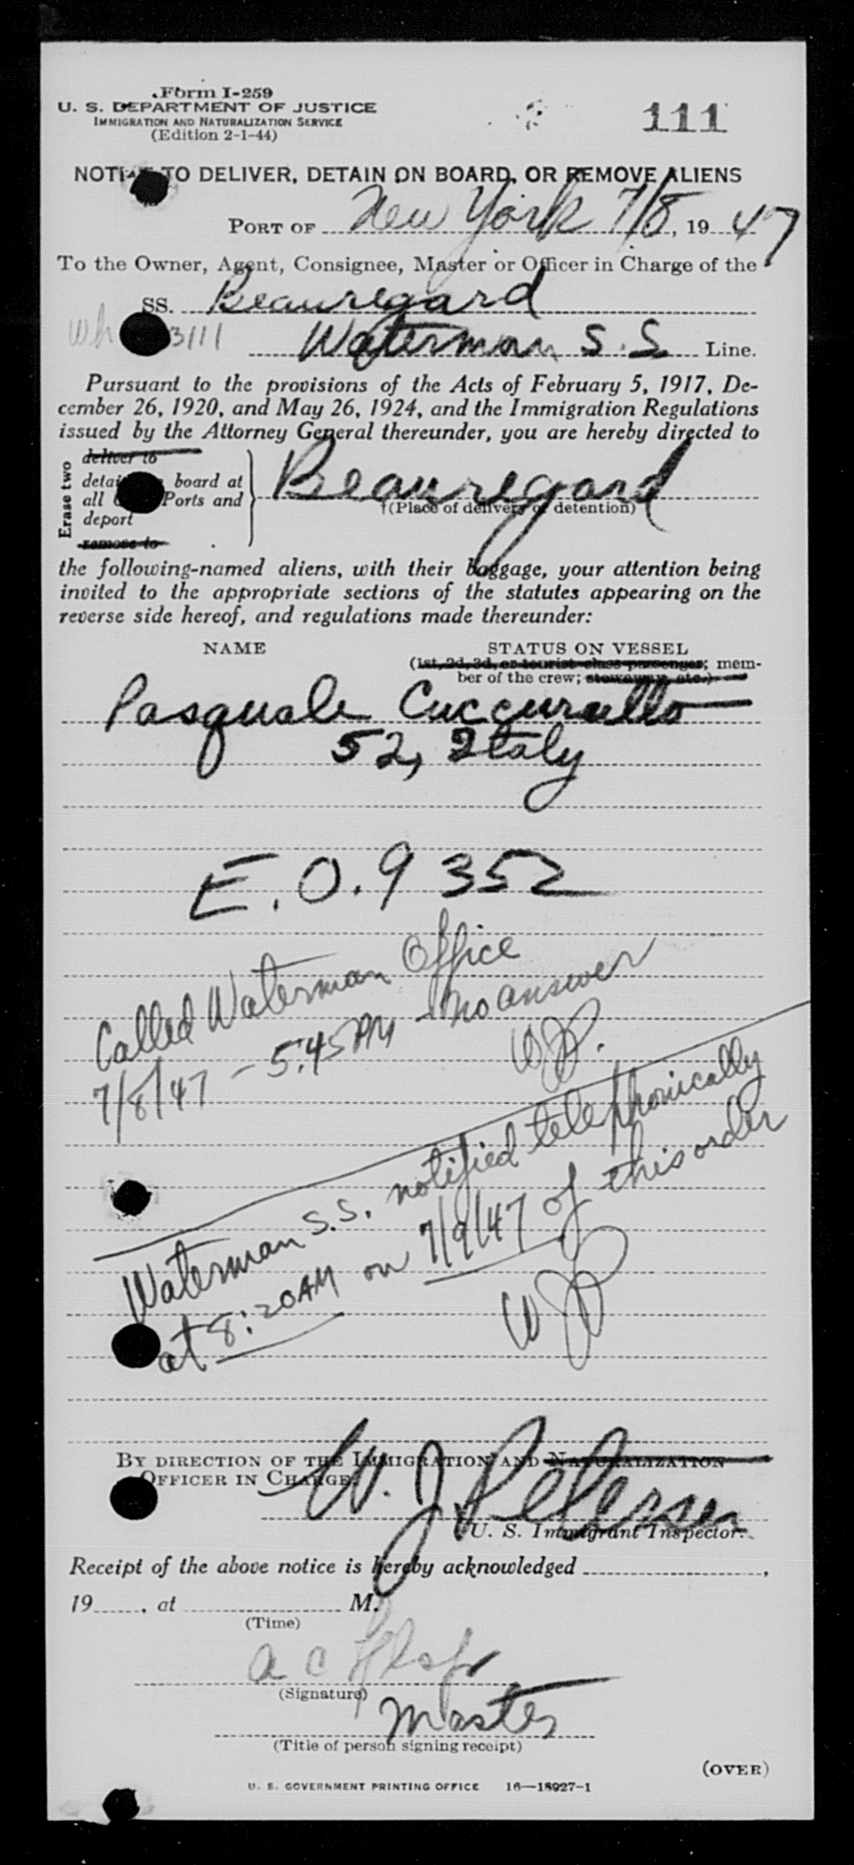 Form I-259
U. S. DEPARTMENT OF JUSTICE
IMMIGRATION AND NATURALIZATION SERVICE
(Edition 2-1-44)
111
NOTICE TO DELIVER, DETAIN ON BOARD, OR REMOVE ALIENS
PORT OF New York 7/8, 1947
To the Owner, Agent, Consignee, Master or Officer in Charge of the
SS. Beauregard
wh 3111 Waterman S.S. Line.
Pursuant to the provisions of the Acts of February 5, 1917, De-
cember 26, 1920, and May 26, 1924, and the Immigration Regulations
issued by the Attorney General thereunder, you are hereby directed to
Erase two
deliver to
detain on board at
all Ports and
deport
remove to
Beauregard
(Place of delivery or detention)
the following-named aliens, with their baggage, your attention being
invited to the appropriate sections of the statutes appearing on the
reverse side hereof, and regulations made thereunder:
NAME STATUS ON VESSEL
(1st, 2d, 3d, or tourist class passenger; mem-
ber of the crew; stowaway, etc.)
Pasquale Cuccurullo
52, Italy
E.O. 9352
Called Waterman Office
7/8/47 - 5:45 PM - no answer
WJP.
Waterman S.S. notified telephonically
at 8:20 AM on 7/9/47 of this order
WJP
BY DIRECTION OF THE IMMIGRATION AND NATURALIZATION
OFFICER IN CHARGE.
W. J. Petersen
U. S. Immigrant Inspector.
Receipt of the above notice is hereby acknowledged ,
19 , at M.
(Time)
a c
(Signature)
Master
(Title of person signing receipt)
(OVER)
U. S. GOVERNMENT PRINTING OFFICE 16—18927-1